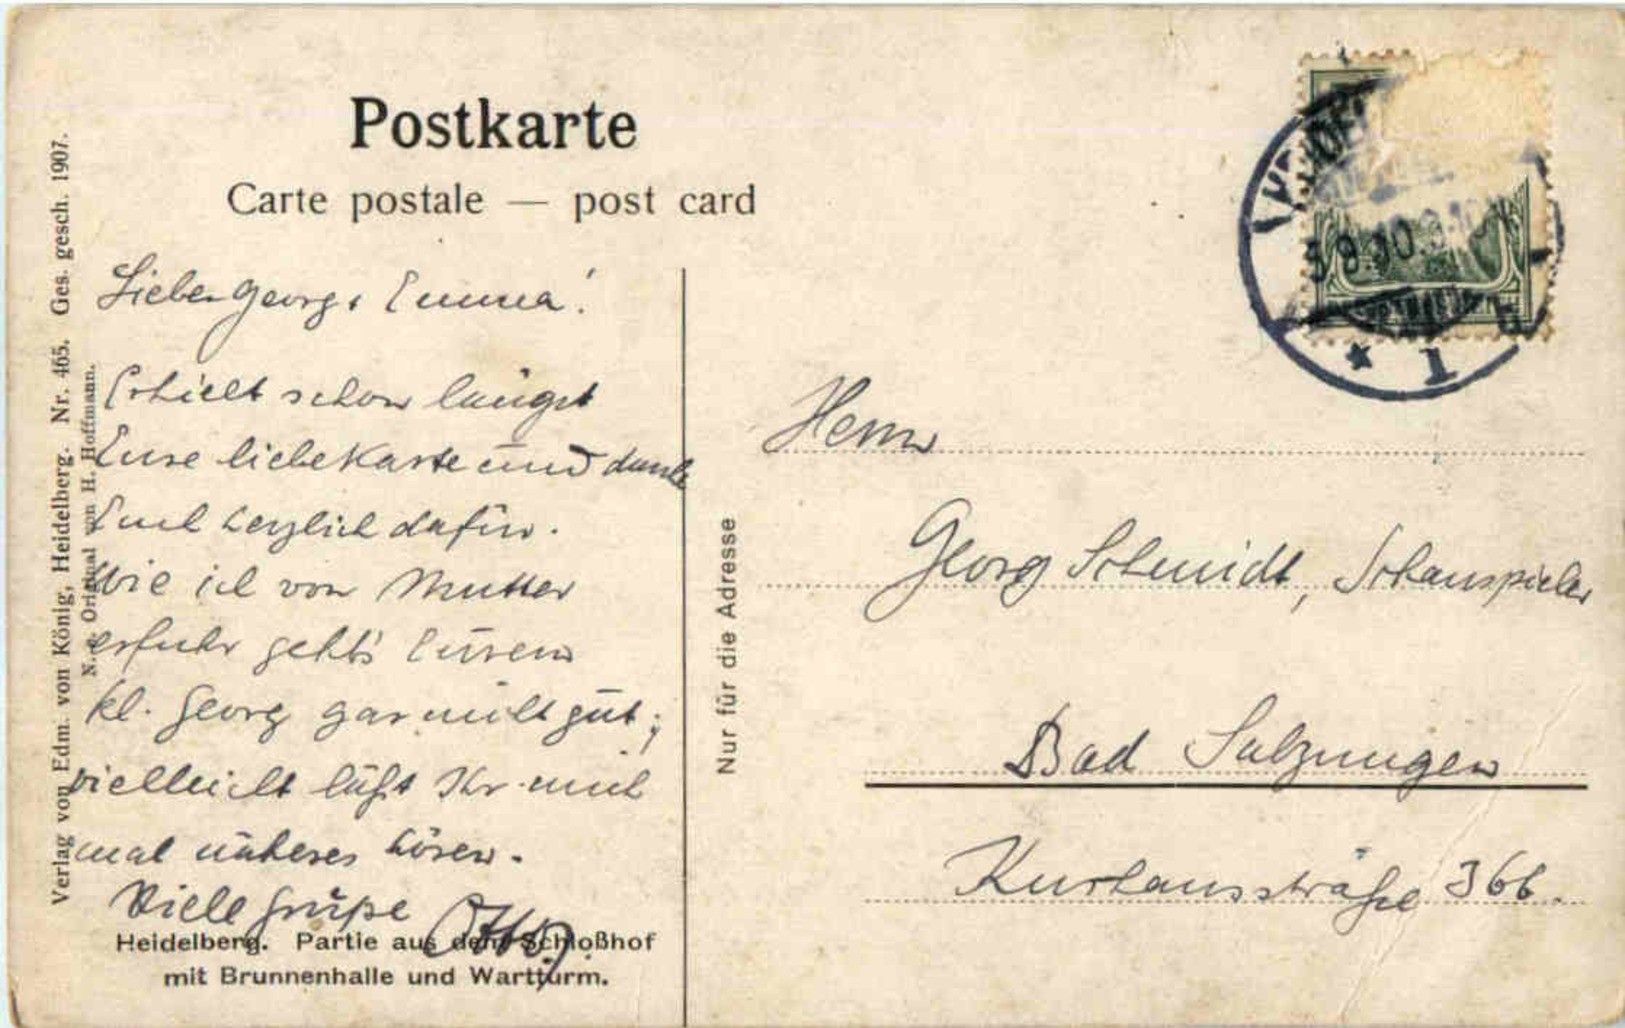 Postkarte
Carte postale — post card
Verlag von Edm. von König, Heidelberg. Nr. 465. Ges. gesch. 1907.
N. e. Original von H. Hoffmann.
Lieber Georg & Emma!
Erhielt schon längst
Eure liebe Karte und danke
Euch herzlich dafür.
Wie ich von Mutter
erfuhr geht's Eurem
kl. Georg gar nicht gut;
vielleicht läßt Ihr mich
mal näheres hören.
Viele Grüße Otto
Heidelberg. Partie aus dem Schloßhof
mit Brunnenhalle und Wartturm.
Nur für die Adresse
Herrn
Georg Schmidt, Schauspieler
Bad Salzungen
Kurhausstraße 36b.
* 1